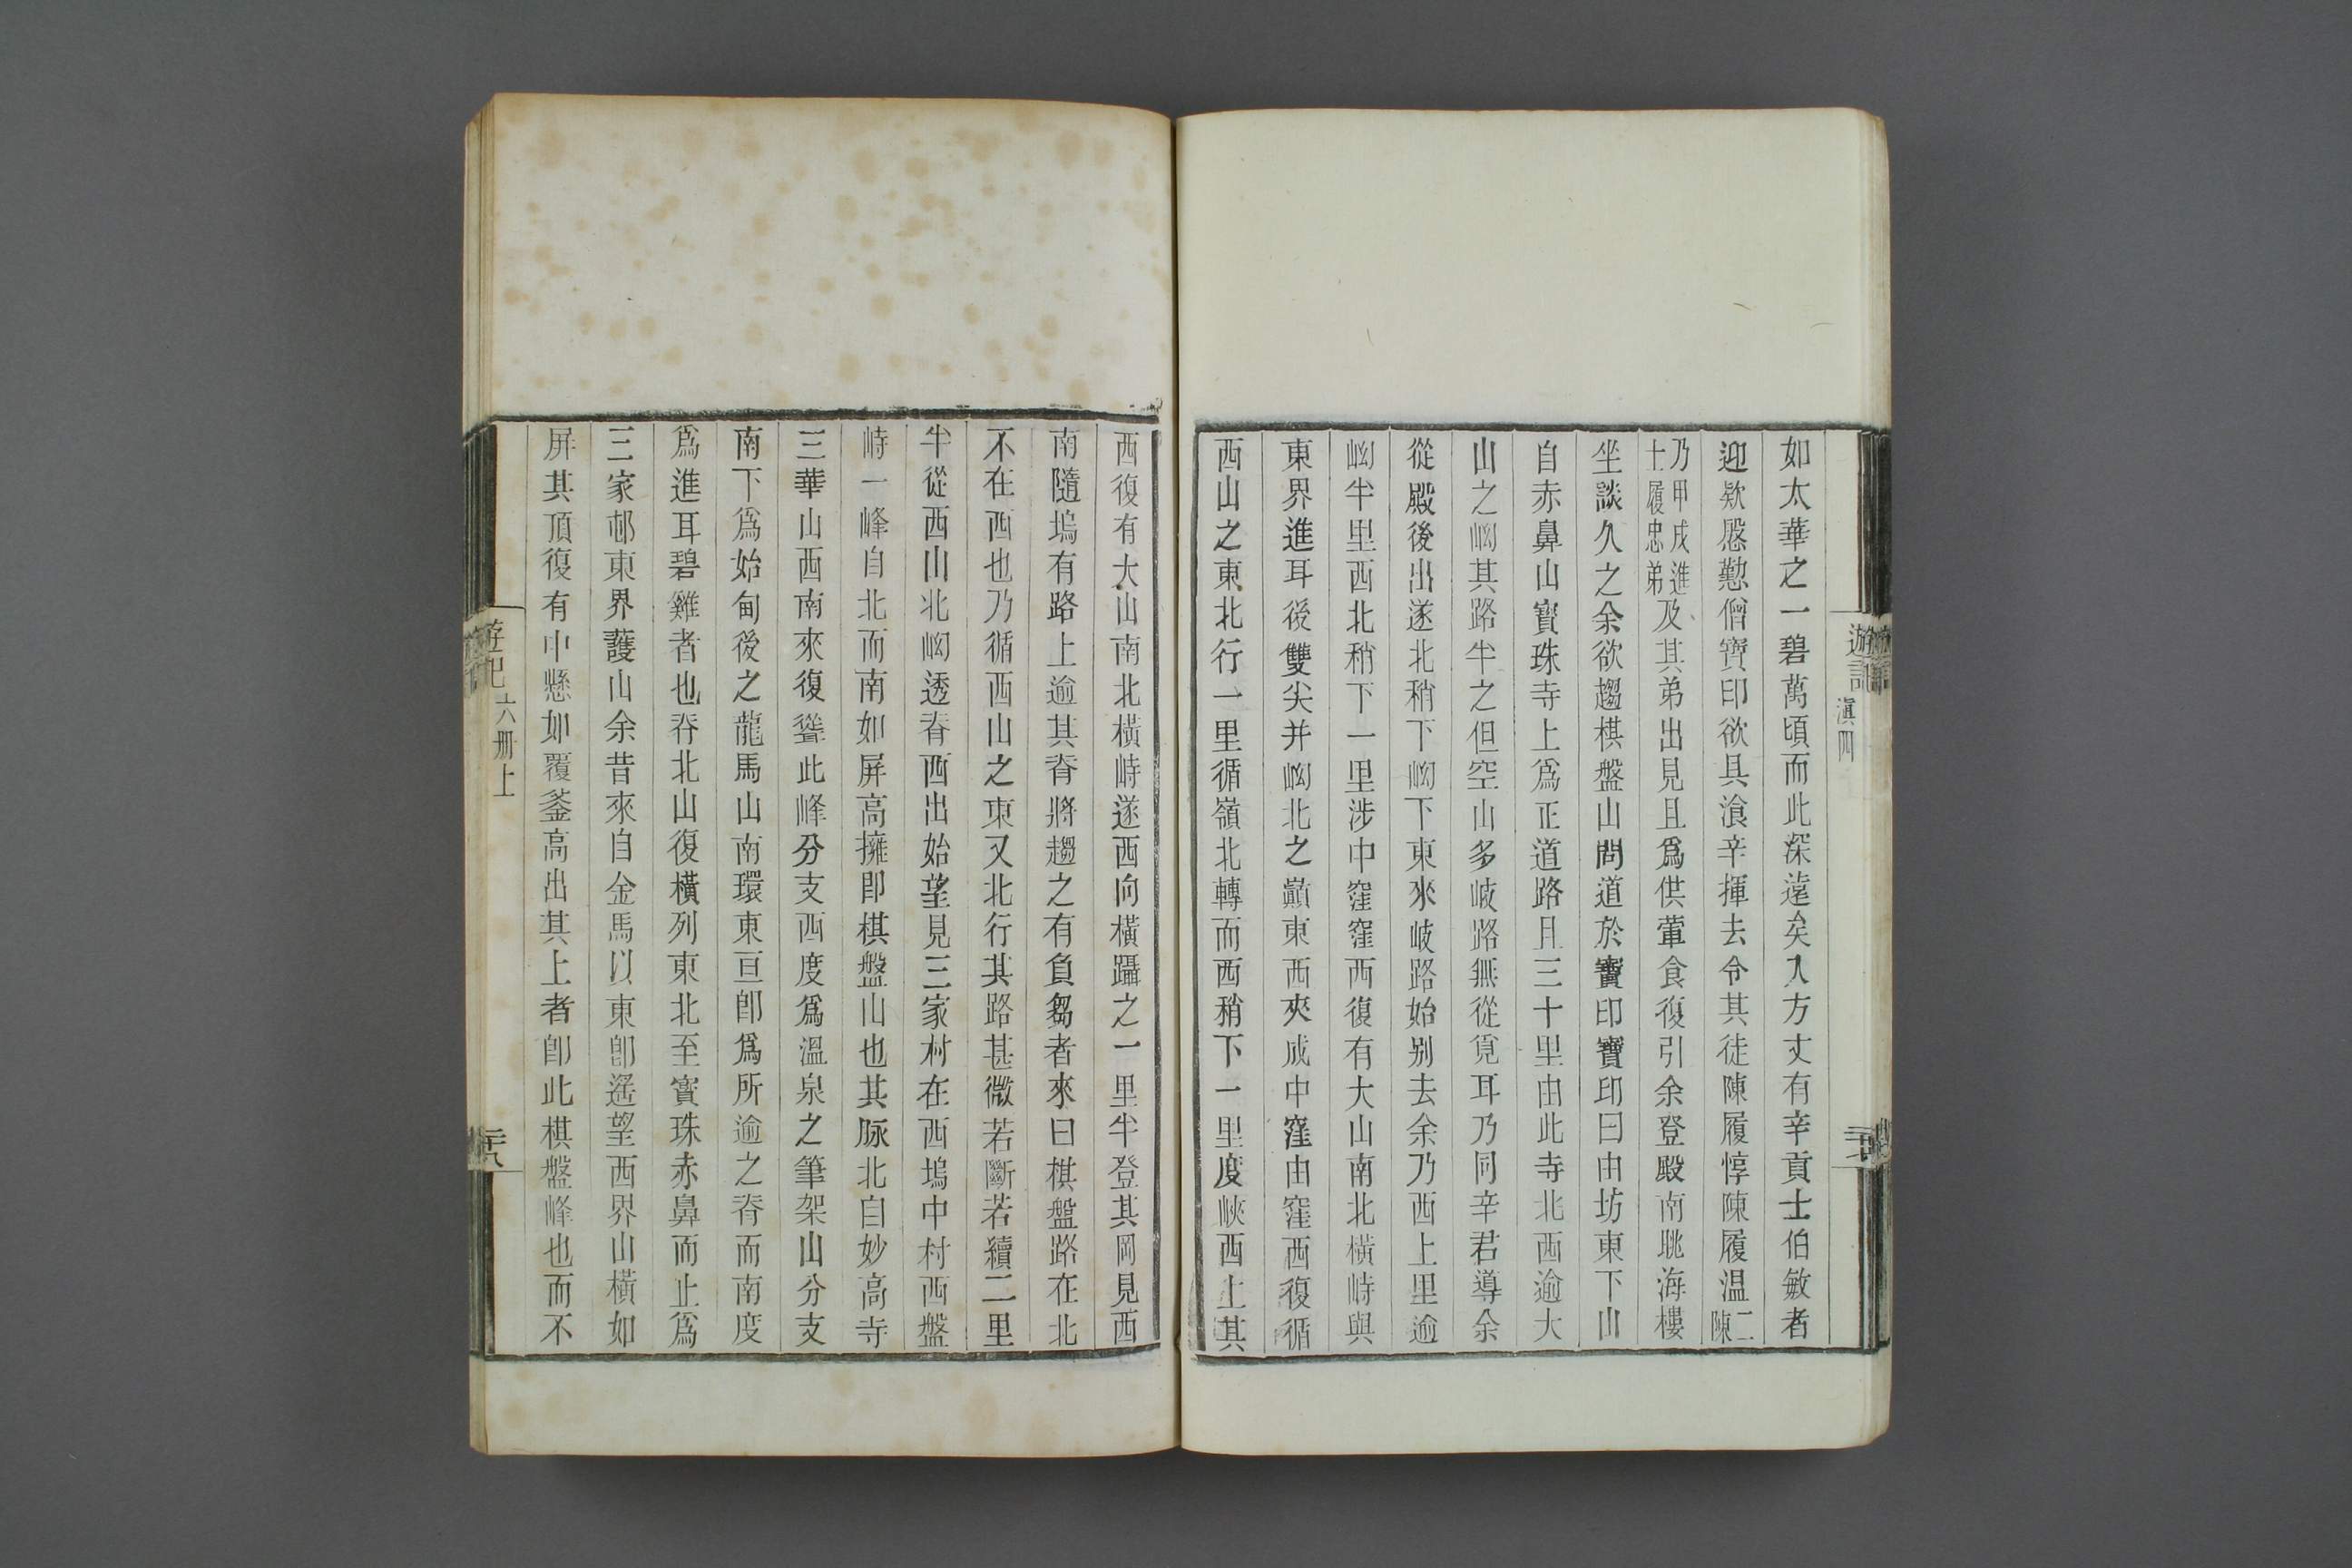 遊記
滇四
二十七
如太華之一碧萬頃而此深遠矣入方丈有辛貢士伯敏者
迎欵慇懃僧寶印欲具湌辛揮去令其徒陳履惇陳履溫二陳
乃甲戌進士履忠弟及其弟出見且爲供葷食復引余登殿南眺海樓
坐談久之余欲趨棋盤山問道於寶印寶印曰由坊東下山
自赤鼻山寶珠寺上爲正道路且三十里由此寺北西逾大
山之㘭其路半之但空山多岐路無從覓耳乃同辛君導余
從殿後出遂北稍下㘭下東來岐路始别去余乃西上里逾
㘭半里西北稍下一里涉中窪窪西復有大山南北橫峙與
東界進耳後雙尖并㘭北之巔東西夾成中窪由窪西復循
西山之東北行一里循嶺北轉而西稍下一里度峽西上其
西復有大山南北橫峙遂西向橫躡之一里半登其岡見西
南隨塢有路上逾其脊將趨之有負芻者來曰棋盤路在北
不在西也乃循西山之東又北行其路甚微若斷若續二里
半從西山北㘭透脊西出始望見三家村在西塢中村西盤
峙一峰自北而南如屏高擁卽棋盤山也其脉北自妙高寺
三華山西南來復聳此峰分支西度爲溫泉之筆架山分支
南下爲始甸後之龍馬山南環東亘卽爲所逾之脊而南度
爲進耳碧雞者也脊北山復橫列東北至寳珠赤鼻而止爲
三家邨東界護山余昔來自金馬以東卽遥望西界山橫如
屏其頂復有中懸如覆釜高出其上者卽此棋盤峰也而不
遊記
六册上
二十八